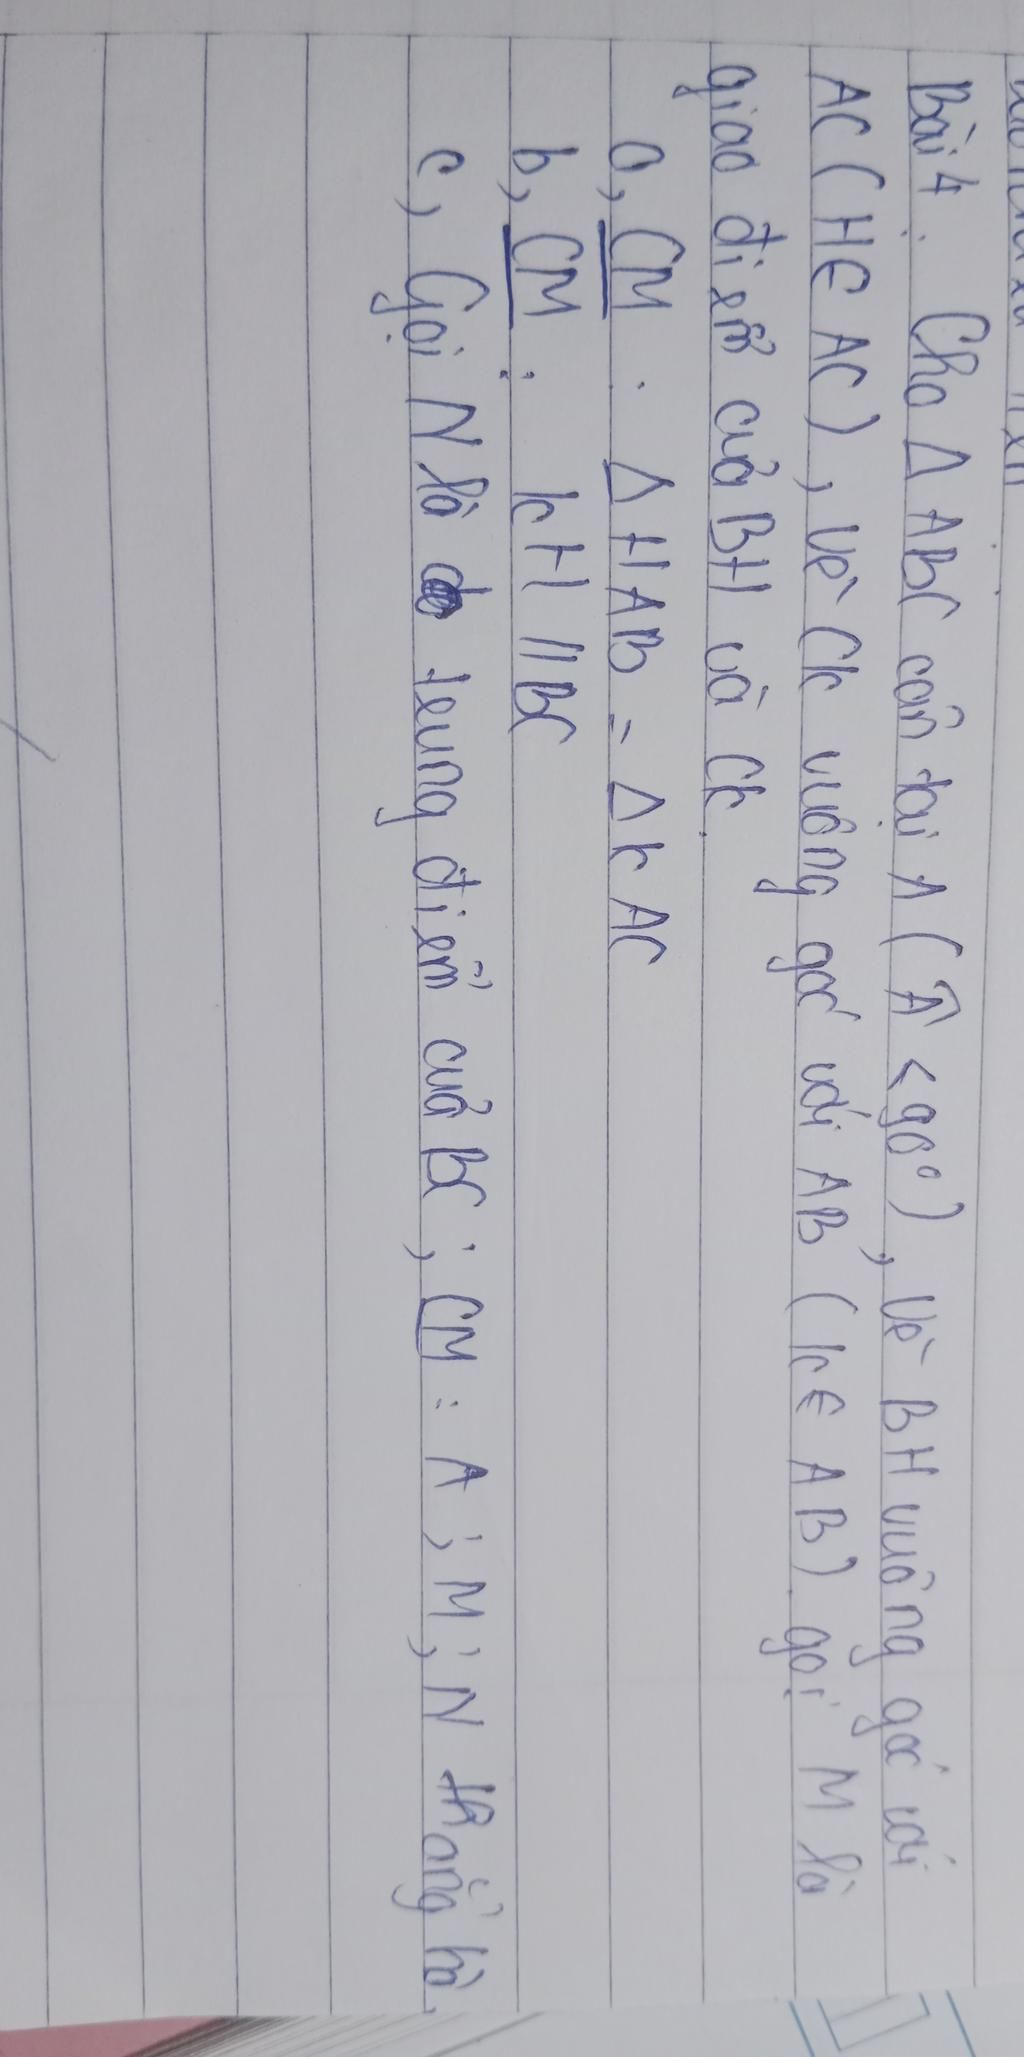 Bài 4: Cho Δ ABC cân tại A (Â < 90°), vẽ BH vuông góc với
AC (H ∈ AC), vẽ CK vuông góc với AB (K ∈ AB). gọi M là
giao điểm của BH và CK.
a, CM : Δ HAB = Δ KAC
b, CM : KH // BC
c, Gọi N là trung điểm của BC; CM : A ; M ; N thẳng hà